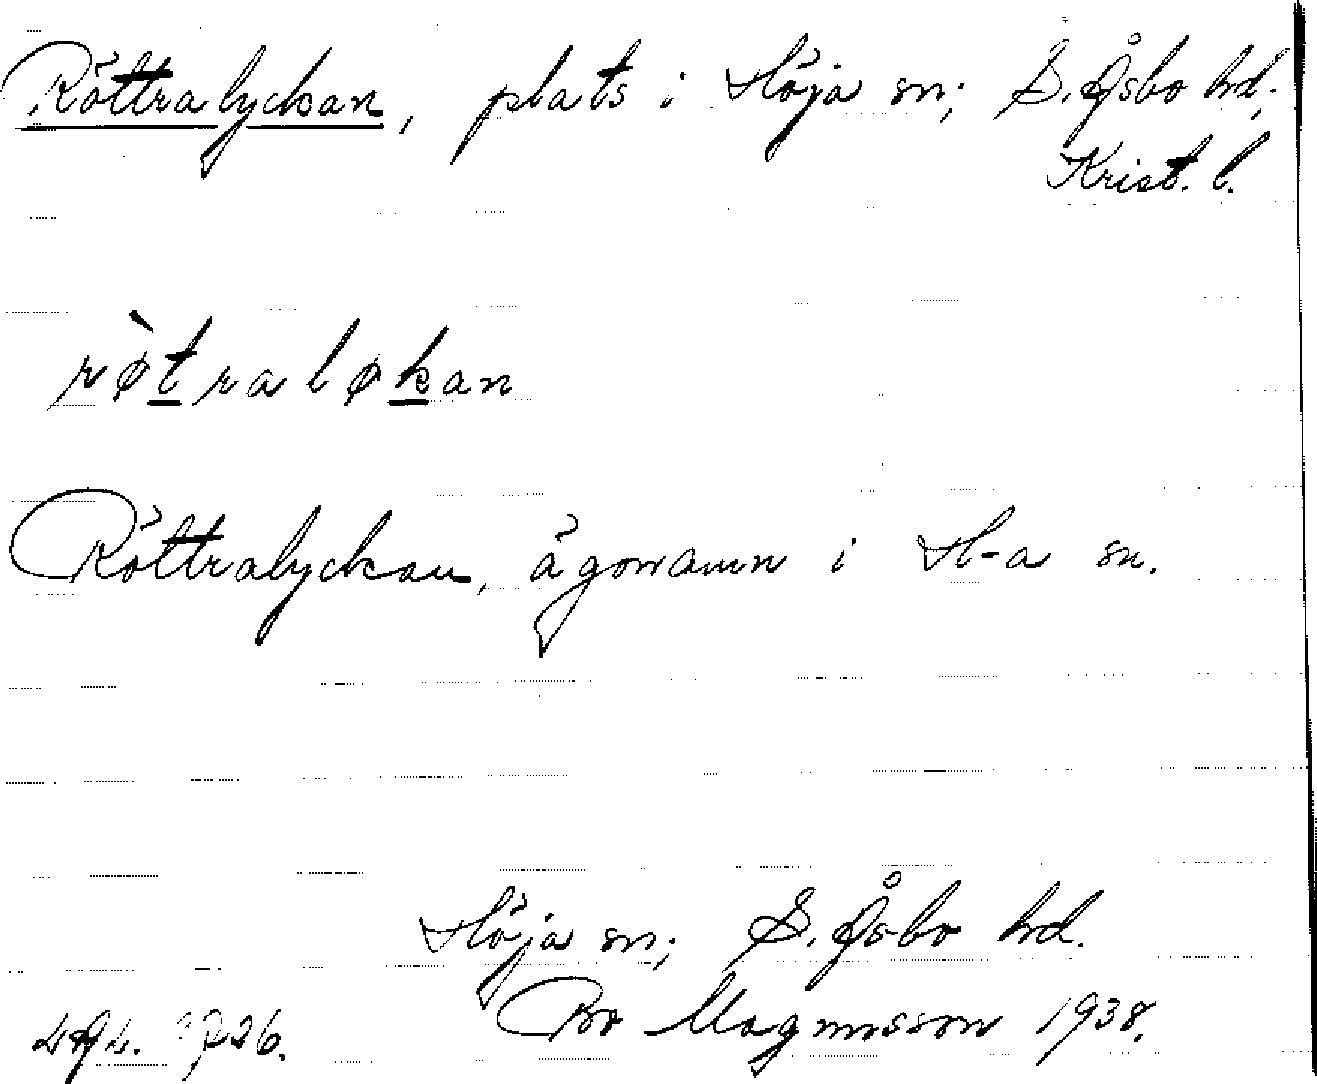 Röttralyckan, plats i Höja sn; S. Åsbo hd.
Krist. l.
rø̀traløkan
Röttralyckan, ägonamn i H-a sn.
Höja sn; S. Åsbo hd.
Bo Magnusson 1938.